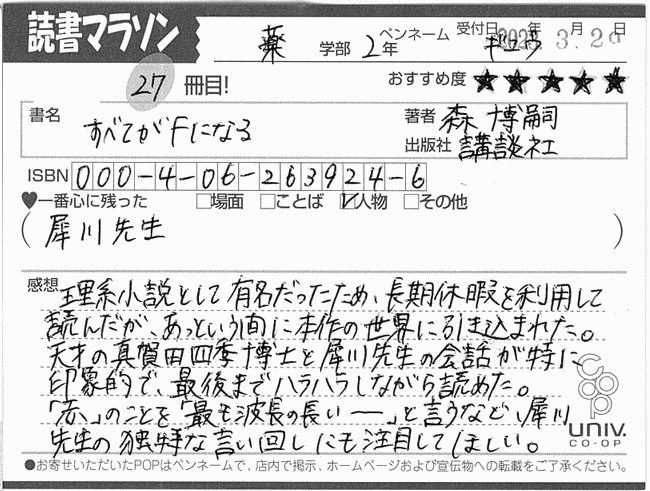 読書マラソン
薬 学部 2年
ペンネーム ギュウ
受付日 年 月 日
3.29
27 冊目!
おすすめ度 ★★★★★
書名 すべてがFになる
著者 森 博嗣
出版社 講談社
ISBN 000-4-06-263924-6
♥一番心に残った □場面 □ことば ☑人物 □その他
(犀川先生)
感想 理系小説として有名だったため、長期休暇を利用して
読んだが、あっという間に本作の世界に引き込まれた。
天才の真賀田四季博士と犀川先生の会話が特に
印象的で、最後までハラハラしながら読めた。
「赤」のことを「最も波長の長い ー」と言うなど、犀川
先生の独特な言い回しにも注目してほしい。
coop
UNIV.
CO-OP
●お寄せいただいたPOPはペンネームで、店内で掲示、ホームページおよび宣伝物への転載をご了承ください。